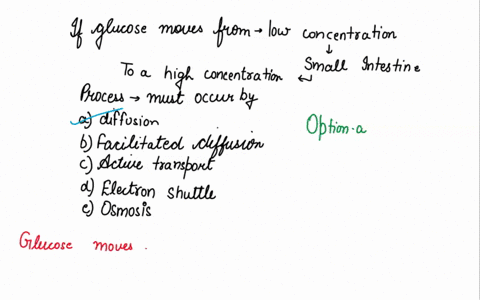 If glucose moves from → low concentration
↓
Small Intestine
To a high concentration ↵
Process → must occur by
a) diffusion
b) Facilitated diffusion
c) Active transport
d) Electron shuttle
e) Osmosis
Option. a
Glucose moves .